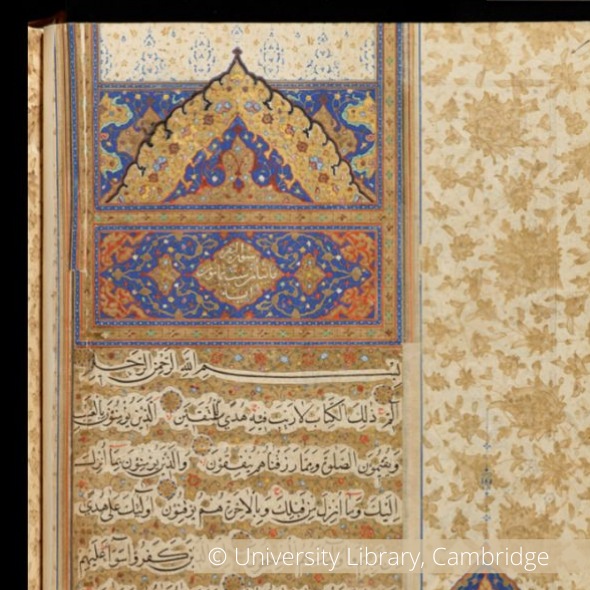 بسم الله الرحمن الرحيم
الم ذلك الكتاب لا ريب فيه هدى للمتقين الذين يؤمنون بالغيب
ويقيمون الصلوة ومما رزقناهم ينفقون والذين يؤمنون بما انزل
اليك وما انزل من قبلك وبالاخرة هم يوقنون اولئك على هدى
كفروا سواء عليهم
© University Library, Cambridge